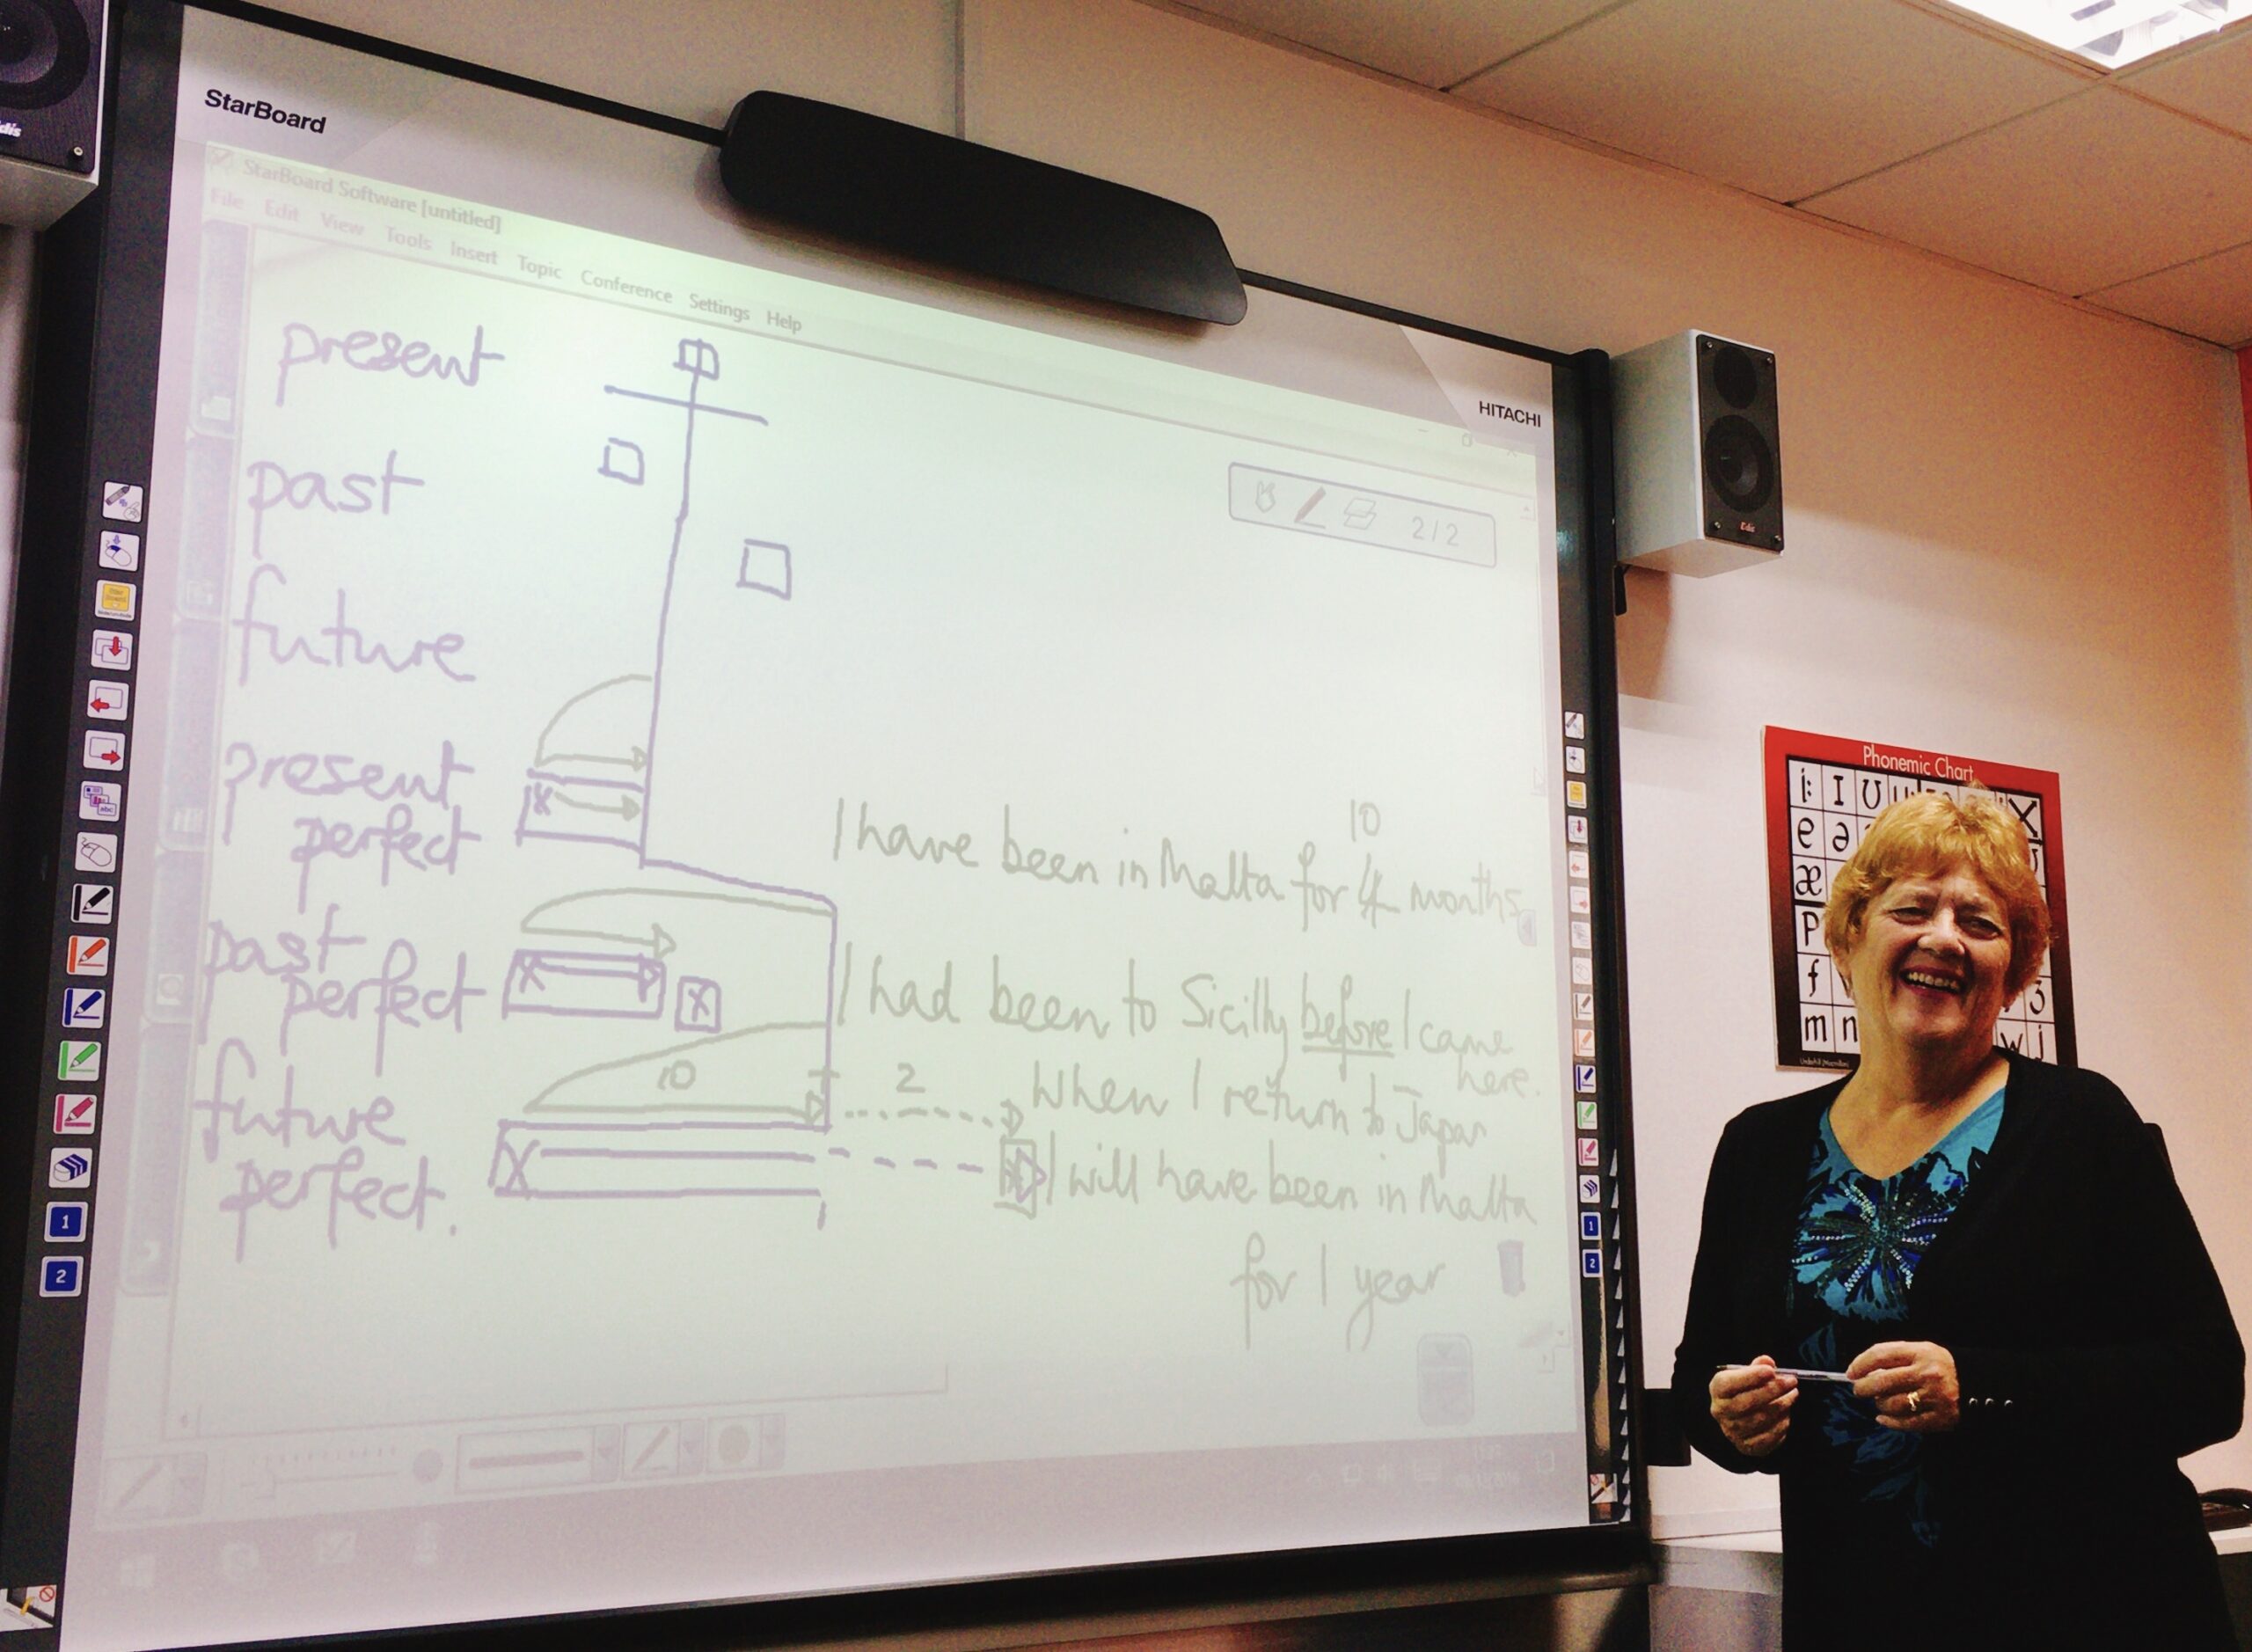 StarBoard
HITACHI
StarBoard Software [untitled]
File Edit View Tools Insert Topic Conference Settings Help
2/2
present
past
future
present
perfect
past
perfect
future
perfect.
10
I have been in Malta for 4 months
I had been to Sicilly before I came
here.
10 + 2
When I return to Japan
I will have been in Malta
for 1 year
1
2
1
2
Edis
Phonemic Chart
i: I ʊ
e ə
æ
p
f ʒ
m n w j